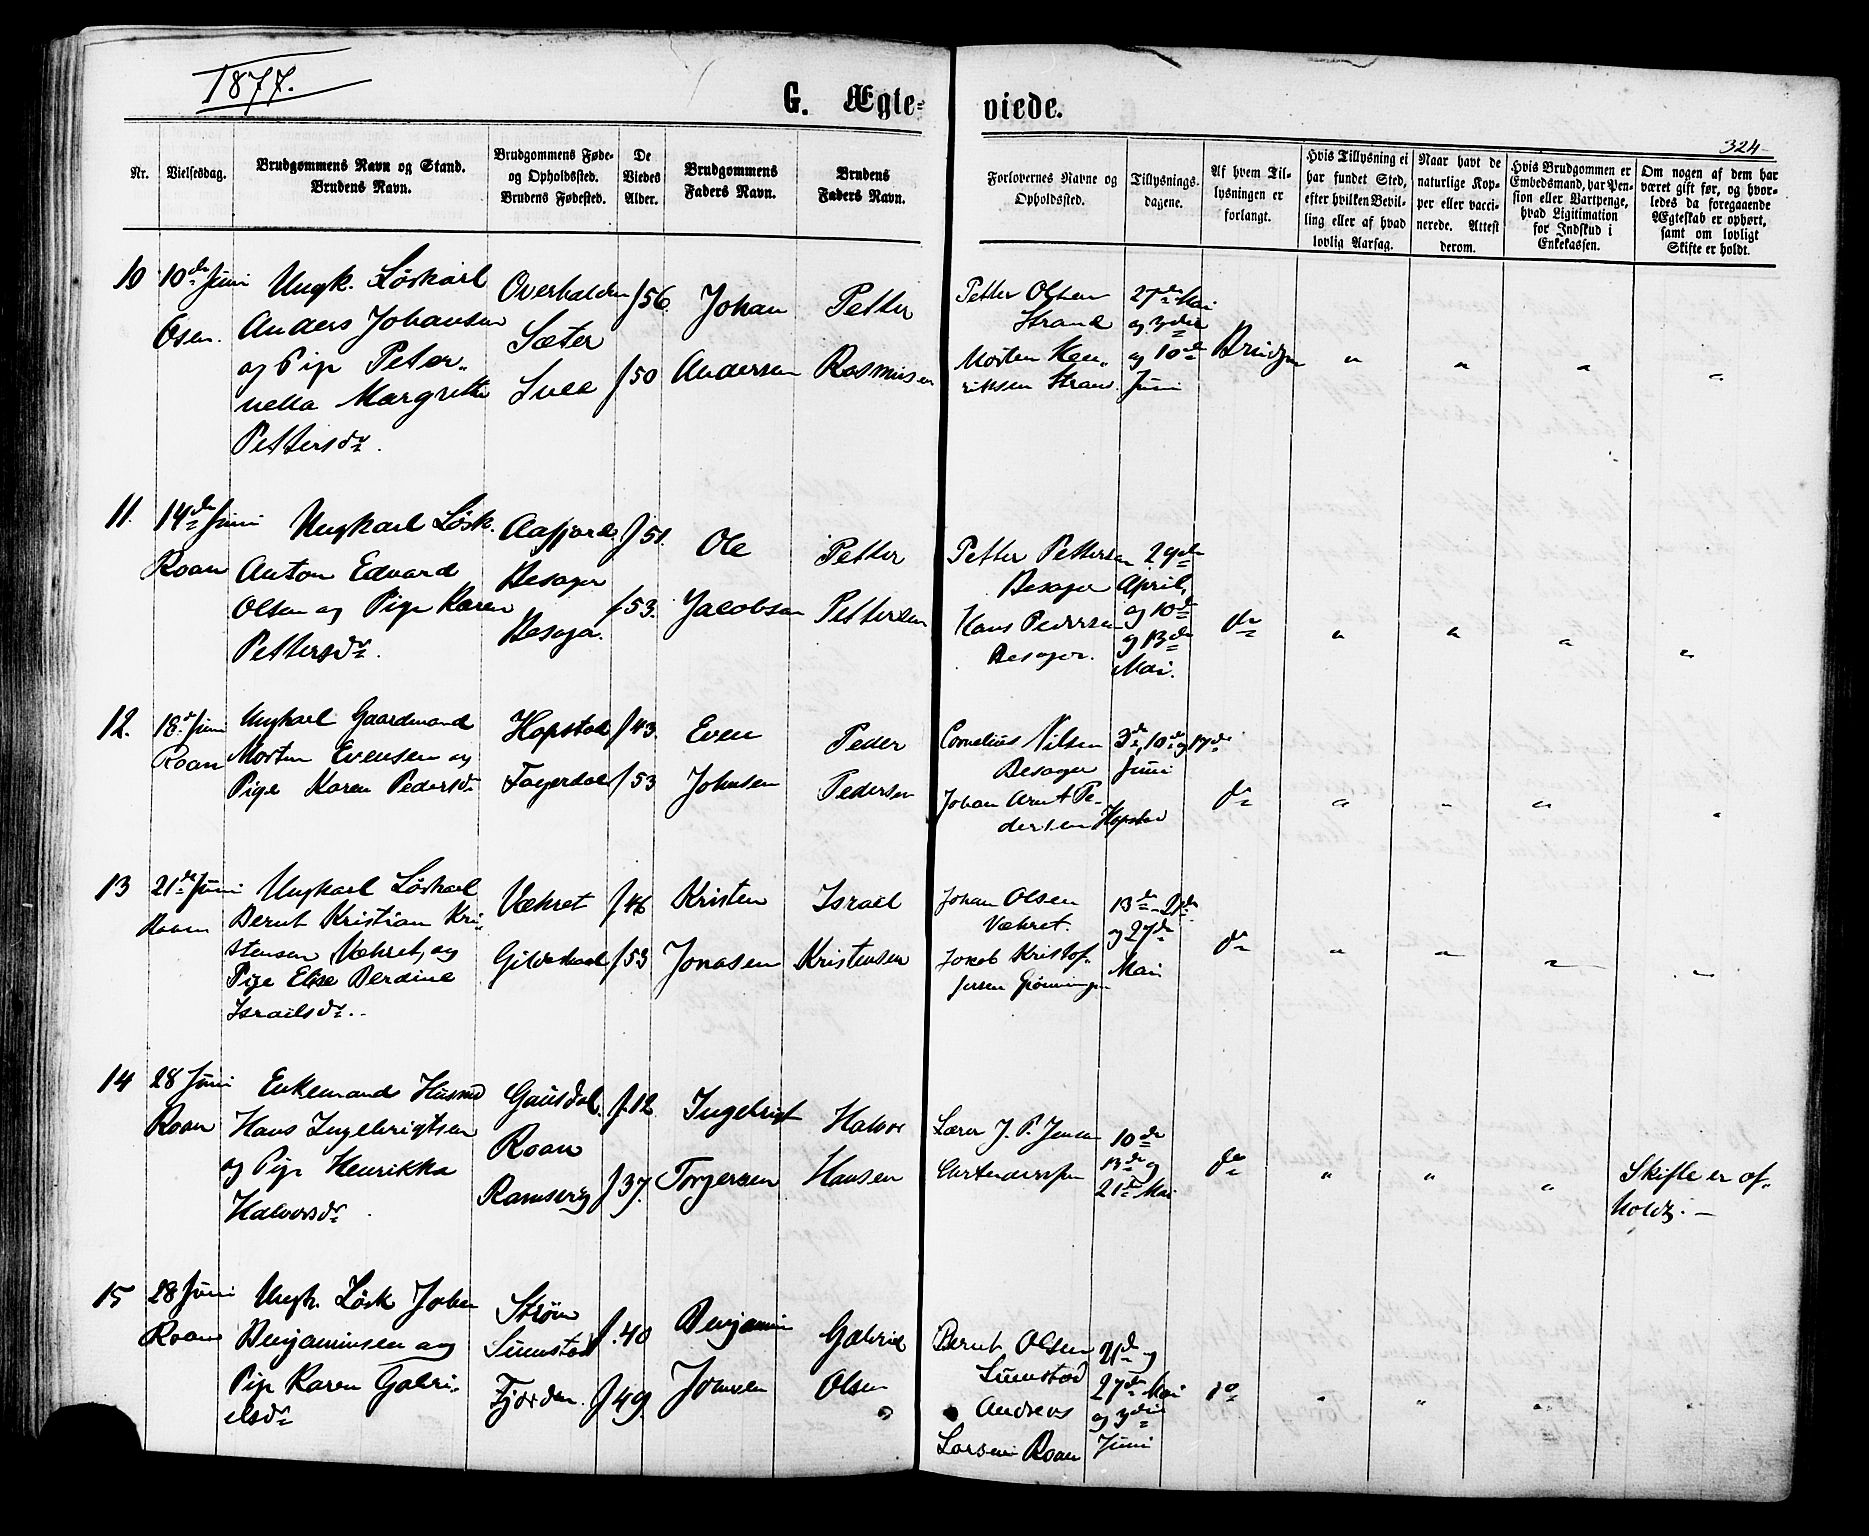 1877.
G. Ægte-
viede.
324
Nr.
Vielsesdag.
Brudgommens Navn og Stand.
Brudens Navn.
Brudgommens Føde-
og Opholdssted.
Brudens Fødested.
De
Viedes
Alder.
Brudgommens
Faders Navn.
Brudens
Faders Navn.
Forlovernes Navne og
Opholdssted.
Tillysnings-
dagene.
Af hvem Til-
lysningen er
forlangt.
Hvis Tillysning ei
har fundet Sted,
efter hvilken Bevil-
ling eller af hvad
lovlig Aarsag.
Naar havt de
naturlige Kop-
per eller vacci-
nerede. Attest
derom.
Hvis Brudgommen er
Embedsmand, har Pen-
sion eller Vartpenge,
hvad Legitimation
for Indskud i
Enkekassen.
Om nogen af dem har
været gift før, og hvor-
ledes da foregaaende
Ægteskab er ophørt,
samt om lovligt
Skifte er holdt.
10
10de Juni
Osen.
Ungk. Løskarl
Anders Johansen
og Pige Peter-
nella Margrethe
Pettersdr.
Overhalden
Sæter
f 56
f 50
Johan
Andersen
Petter
Rasmusen
Petter Olsen
Strand
Morten Hen-
riksen Strand
27de Mai
og 3die
og 10de
Juni
"
"
"
"
11.
14de Juni
Roan
Ungkarl Løsk.
Anton Edvard
Olsen og Pige Karen
Pettersdr.
Aafjord
Besager
Besager.
f 51.
f 53.
Ole
Jacobsen
Petter
Pettersen
Petter Pettersen
Besager
Hans Pedersen
Besager.
29de
April,
og 10de
og 13de
Mai.
do
"
"
"
"
12.
18de Juni
Roan
Ungkarl Gaardmand
Morten Evensen og
Pige Karen Pedersdr
Hopstad
Fagerdal
f 43.
f 53
Even
Johnsen
Peder
Pedersen
Cornelius Nilsen
Besager
Johan Arnt Pe-
dersen Hopstad
3de, 10de og 17de
Juni
do
"
"
"
"
13
21de Juni
Roan
Ungkarl Løskarl
Bernt Kristian Kri-
stensen Væhret, og
Pige Elise Berdine
Israelsdr.
Væhret
Gildeskaal
f 46
f 53
Kristen
Jonasen
Israel
Kristensen
Johan Olsen
Væhret.
Jakob Kristof-
fersen Grønningen
13de 21de
og 27de
Mai
do
"
"
"
"
14
28 Juni
Roan
Enkemand Husmd
Hans Ingebrigtsen
og Pige Henrikka
Halvorsdr.
Gausdal.
Roan
Ramsvig
f. 12
f 37.
Ingebrigt
Torgersen
Halvor
Hansen
Lærer J. P. Jensen
10de
13de og
21de Mai
do
"
"
"
Skifte er af-
holdt.
15
28 Juni
Roan
Ungk. Løsk Johan
Benjaminsen og
Pige Karen Gabri-
elsdr
Strøm
Sumstad
Fjorden.
f. 40
f 49.
Benjamin
Jonsen
Gabriel
Olsen
Bernt Olsen
Sumstad
Andreas
Larsen Roan
21de og
27de Mai
og 3die
Juni
do
"
"
"
"